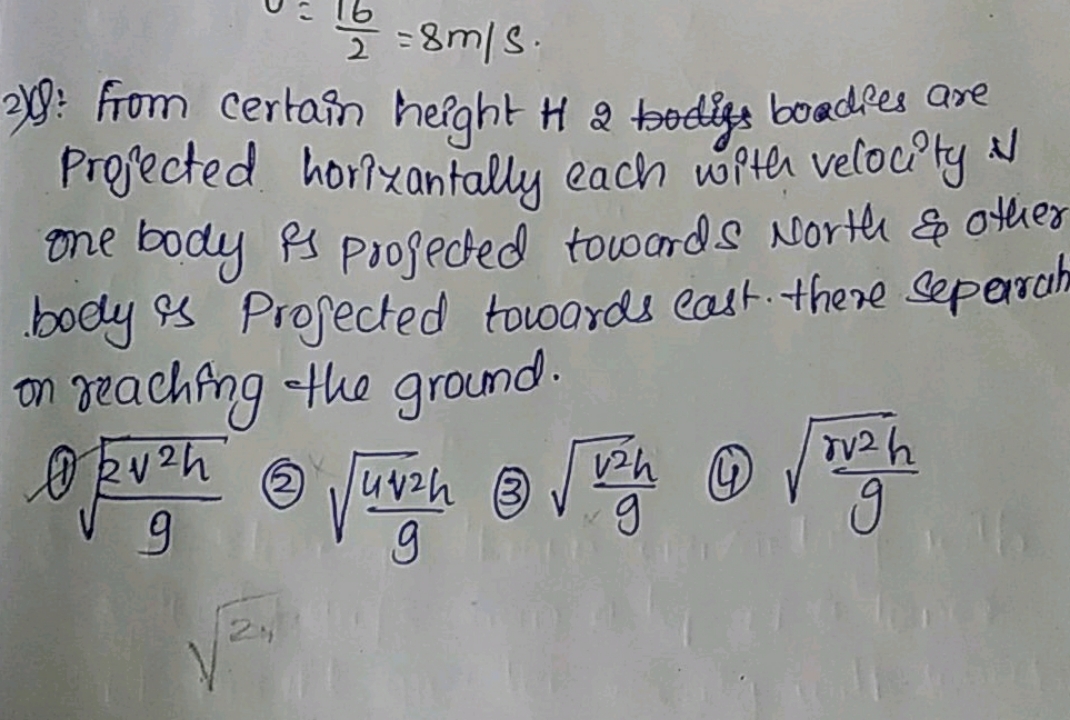 υ = 16/2 = 8m/s.
2)Q: from certain height H 2 bodigs boadies are
Projected horixantally each with velocity
one body is projected towards North & other
body is Projected towards east. there Separat
on reaching the ground.
① √2v2h/g ② √4v2h/g ③ √v2h/g ④ √rv2h/g
√2